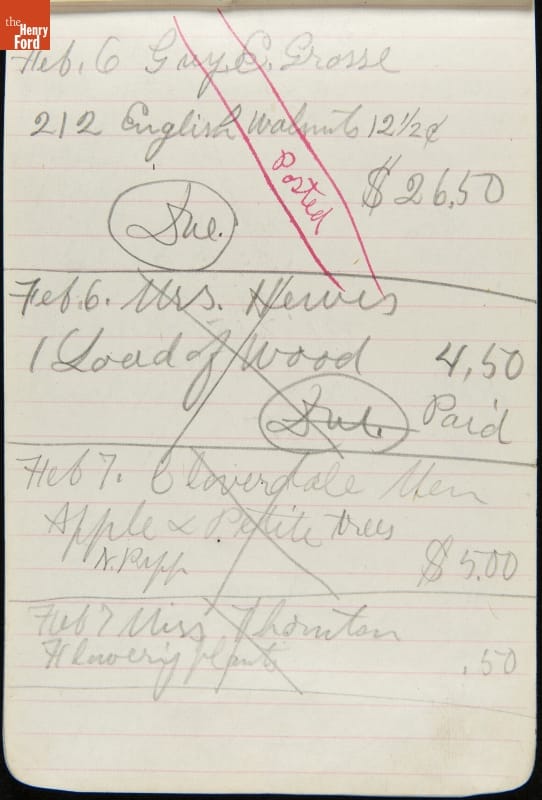 the
Henry
Ford
Feb. 6 Guy E. Grosse
212 English Walnuts 12½¢
Posted
$26.50
Due.
Feb. 6. Mrs. Hewes
1 Load of Wood 4,50
Due. Paid
Feb 7. Cloverdale Men
Apple & Petite trees
N. Pipp
$5.00
Feb 7 Miss Thornton
Flowering plants .50